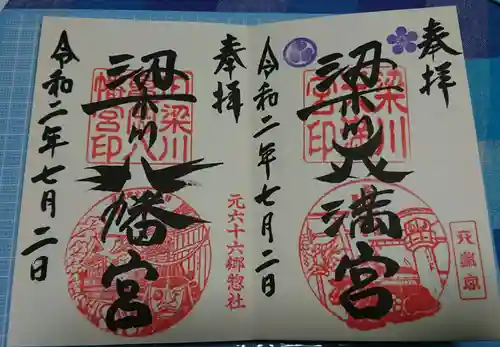 奉拝
梁川天満宮
梁川天満宮印
令和二年七月二日
天満宮
奉拝
梁川八幡宮
元六十六郷惣社
令和二年七月二日